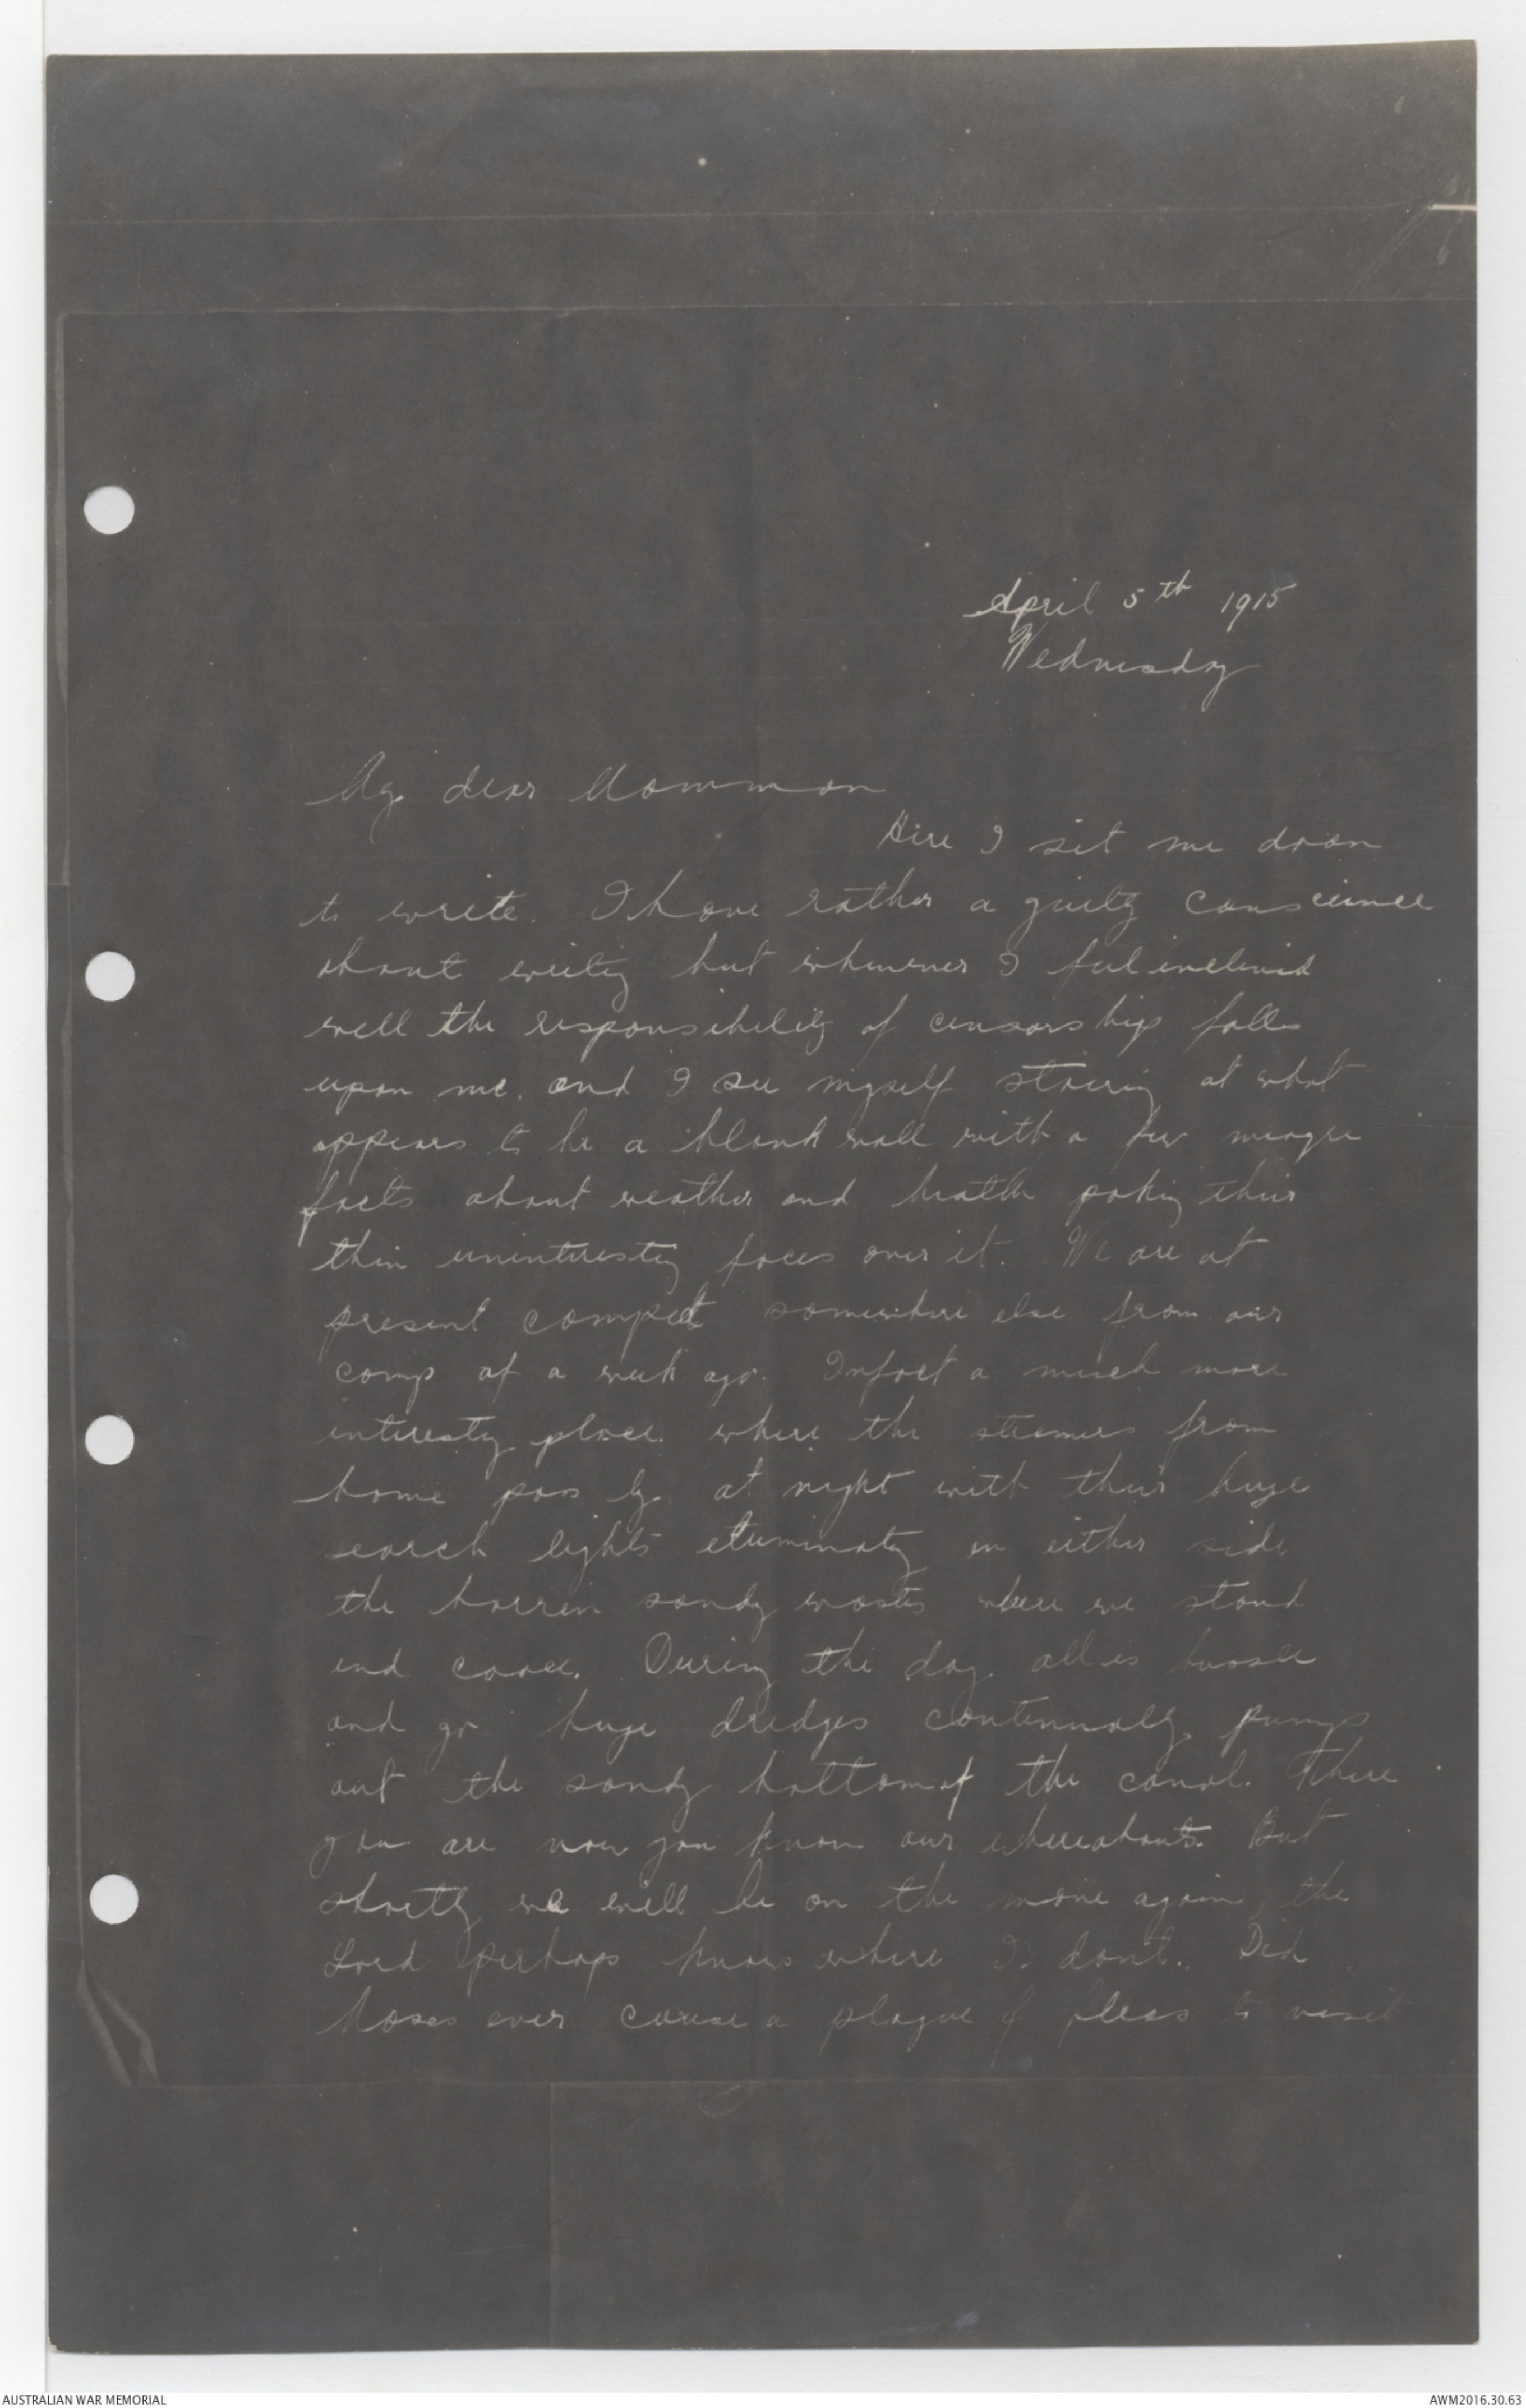 April 5th 1915
Wednesday
My dear Mamman
Here I sit me down
to write. I have rather a guilty conscience
about writing but whenever I feel inclined
well the responsibility of censorship falls
upon me, and I see myself staring at what
appears to be a blank wall with a few meagre
facts about weather and health poking their
thin uninteresting faces over it. We are at
present camped somewhere else from our
camp of a week ago. Infact a much more
interesting place. where the steamers from
home pass by, at night with their huge
search lights on either side
the barren sandy wastes where we stand
and During the day all is
and go huge dredges continually pump
out the sandy bottom of the canal. There
you are now you know our whereabouts. But
shortly we will be on the move again, the
Lord perhaps knows where I dont. Did
Moses ever cause a plague of fleas to visit
AUSTRALIAN WAR MEMORIAL
AWM2016.30.63